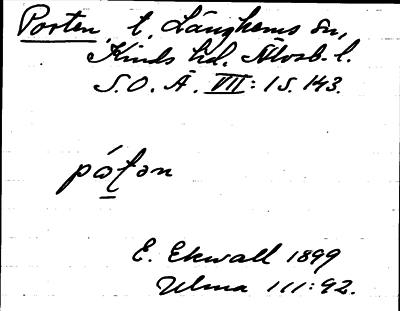 Porten, t. Långhems sn,
Kinds hd. Älvsb. l.
S.O.Ä. VII: 1 S. 143.
pá̱ʈən
E. Ekwall 1899
Ulma 111:92.